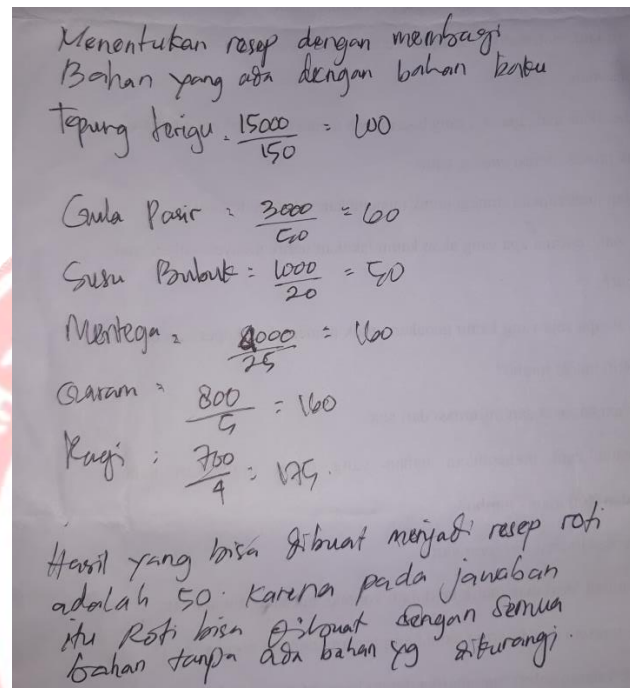 Menentukan resep dengan membagi
Bahan yang ada dengan bahan baku
Tepung terigu = 15000/150 = 100
Gula Pasir = 3000/50 = 60
Susu Bubuk = 1000/20 = 50
Mentega = 4000/25 = 160
Garam = 800/5 = 160
Ragi = 700/4 = 175.
Hasil yang bisa dibuat menjadi resep roti
adalah 50. Karena pada jawaban
itu Roti bisa dibuat dengan semua
bahan tanpa ada bahan yg dikurangi.